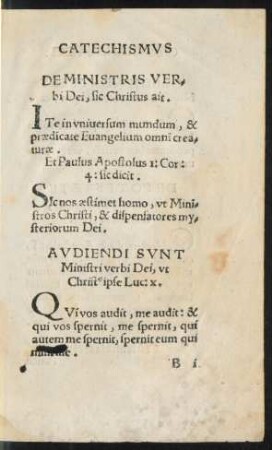 CATECHISMVS
DE MINISTRIS VER-
bi Dei, sic Christus ait.
ITe in vniuersum mundum, &
prædicate Euangelium omni crea-
turæ.
Et Paulus Apostolus 1: Cor:
4: sic dicit.
SIc nos æstimet homo, vt Mini-
stros Christi, & dispensatores my-
steriorum Dei.
AVDIENDI SVNT
Ministri verbi Dei, vt
Christꝰ ipse Luc: x.
QVi vos audit, me audit: &
qui vos spernit, me spernit, qui
autem me spernit, spernit eum qui
B 1.